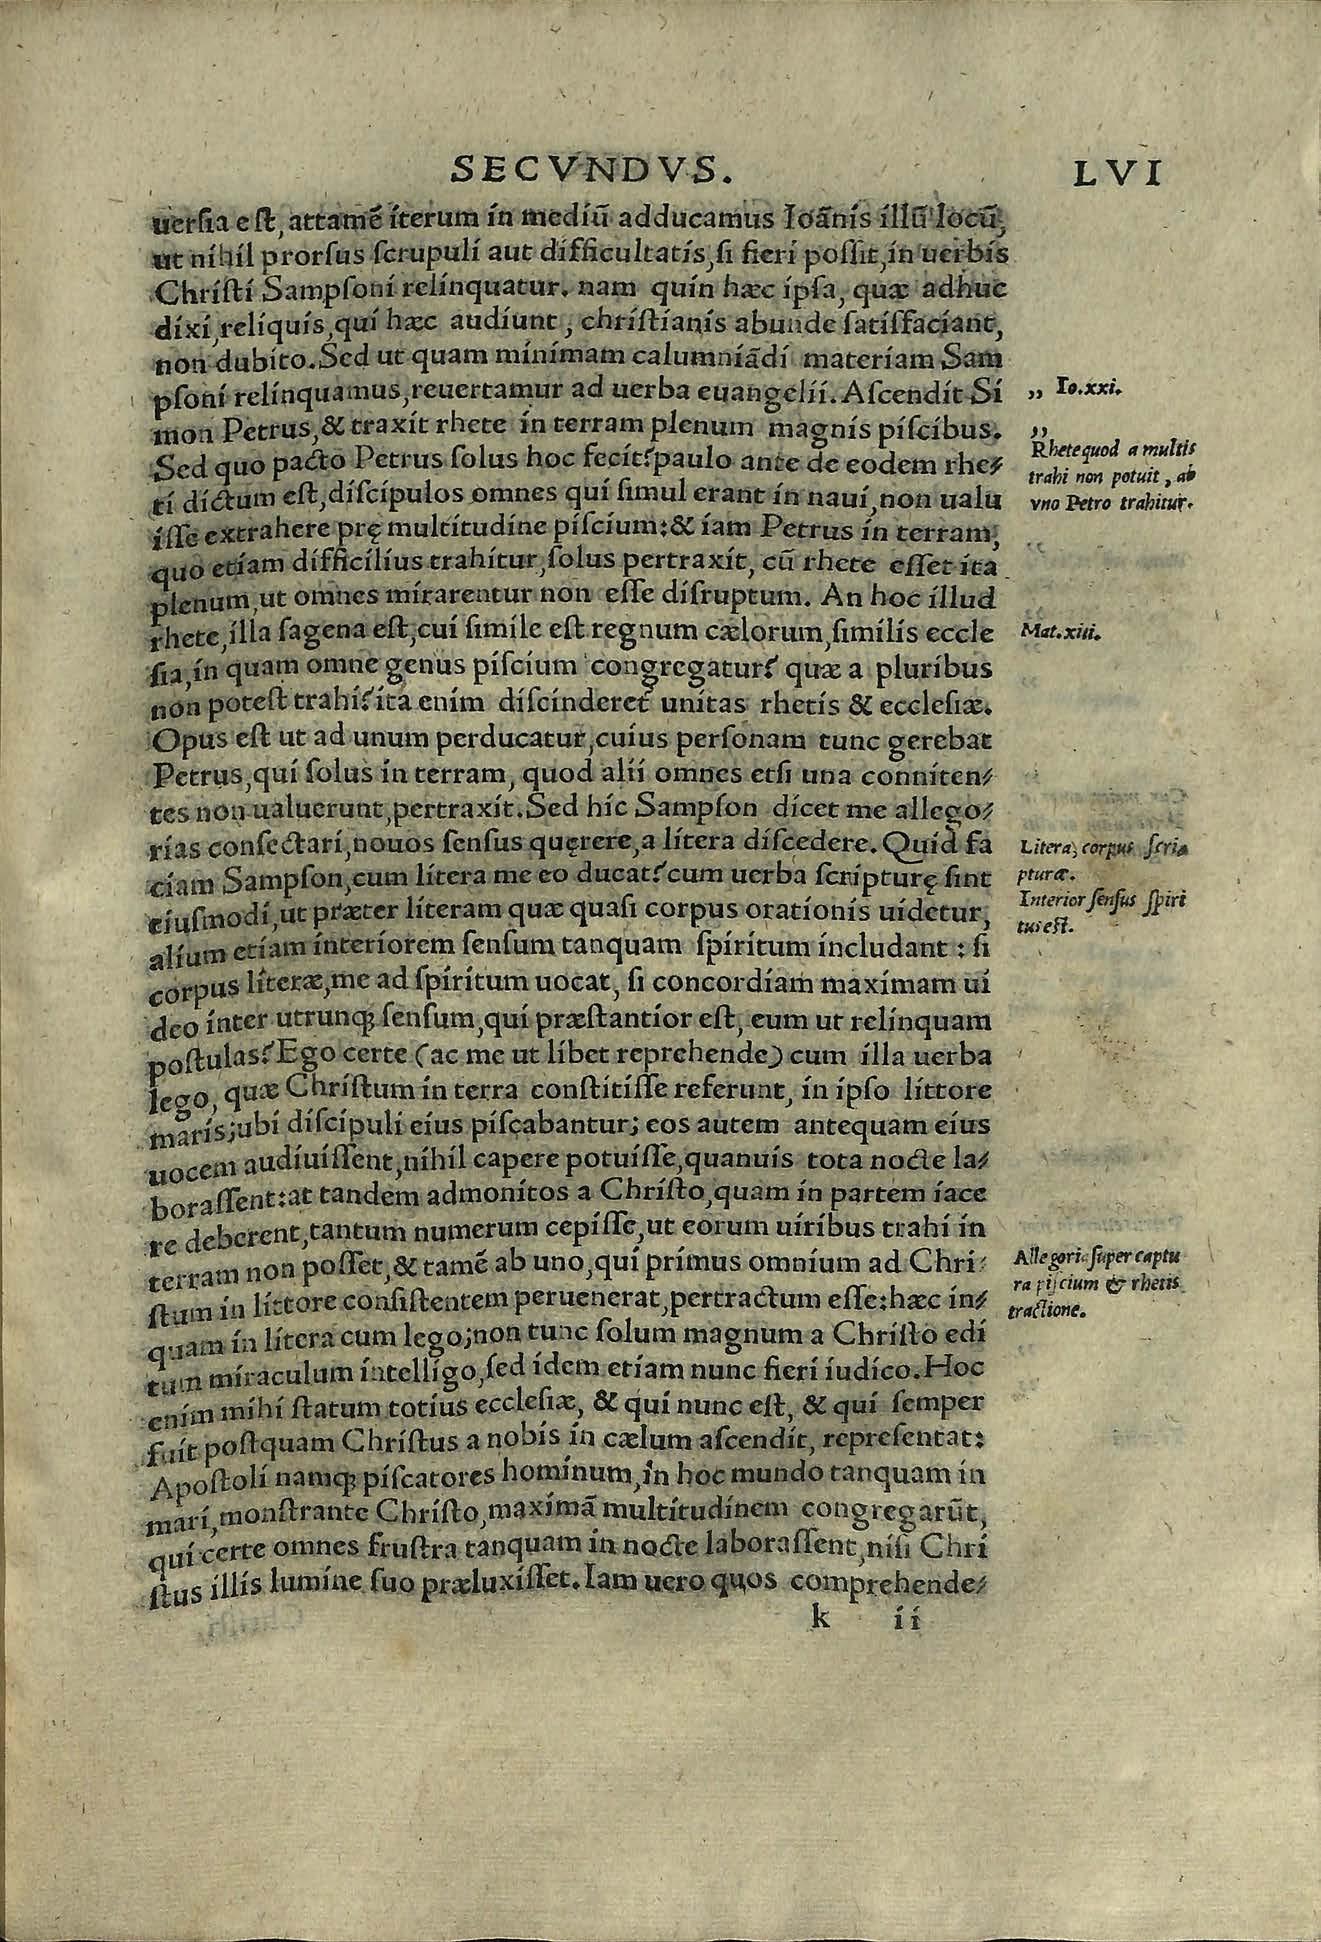 SECVNDVS. LVI
uersia est, attamē iterum in mediū adducamus Ioānis illū locū,
ut nihil prorsus scrupuli aut difficultatis, si fieri possit, in uerbis
Christi Sampsoni relinquatur. nam quin hæc ipsa, quæ adhuc
dixi, reliquis, qui hæc audiunt, christianis abunde satisfaciant,
non dubito. Sed ut quam minimam calumniādi materiam Sam
psoni relinquamus, reuertamur ad uerba euangelii. Ascendit Si
,, Io.xxi.
mon Petrus, & traxit rhete in terram plenum magnis piscibus.
,,
Sed quo pacto Petrus solus hoc fecit? paulo ante de eodem rhe/
ti dictum est, discipulos omnes qui simul erant in naui, non ualu
isse extrahere prę multitudine piscium: & iam Petrus in terram,
Rhete quod a multis
trahi non potuit, ab
vno Petro trahitur.
quo etiam difficilius trahitur, solus pertraxit, cū rhete esset ita
plenum, ut omnes mirarentur non esse disruptum. An hoc illud
rhete, illa sagena est, cui simile est regnum cælorum, similis eccle
Mat.xiii.
sia, in quam omne genus piscium congregatur? quæ a pluribus
non potest trahi? ita enim discinderet unitas rhetis & ecclesiæ.
Opus est ut ad unum perducatur, cuius personam tunc gerebat
Petrus, qui solus in terram, quod alii omnes etsi una conniten/
tes non ualuerunt, pertraxit. Sed hic Sampson dicet me allego/
rias consectari, nouos sensus quęrere, a litera discedere. Quid fa
ciam Sampson, cum litera me eo ducat? cum uerba scripturę sint
eiusmodi, ut præter literam quæ quasi corpus orationis uidetur,
alium etiam interiorem sensum tanquam spiritum includant: si
Litera, corpus scri
pturæ.
Interior sensus spiri
tus est.
corpus literæ, me ad spiritum uocat, si concordiam maximam ui
deo inter utrunq; sensum, qui præstantior est, eum ut relinquam
postulas? Ego certe (ac me ut libet reprehende) cum illa uerba
lego, quæ Christum in terra constitisse referunt, in ipso littore
maris; ubi discipuli eius piscabantur; eos autem antequam eius
uocem audiuissent, nihil capere potuisse, quanuis tota nocte la/
borassent: at tandem admonitos a Christo, quam in partem iace
re deberent, tantum numerum cepisse, ut eorum uiribus trahi in
terram non posset, & tamē ab uno, qui primus omnium ad Chri/
stum in littore consistentem peruenerat, pertractum esse: hæc in/
Allegori. super captu
ra piscium & rhetis
tractione.
quam in litera cum lego; non tunc solum magnum a Christo edi
tum miraculum intelligo, sed idem etiam nunc fieri iudico. Hoc
enim mihi statum totius ecclesiæ, & qui nunc est, & qui semper
fuit postquam Christus a nobis in cælum ascendit, representat:
Apostoli namq; piscatores hominum, in hoc mundo tanquam in
mari, monstrante Christo, maximā multitudinem congregarūt,
qui certe omnes frustra tanquam in nocte laborassent, nisi Chri
stus illis lumine suo præluxisset. Iam uero quos comprehende/
k ii